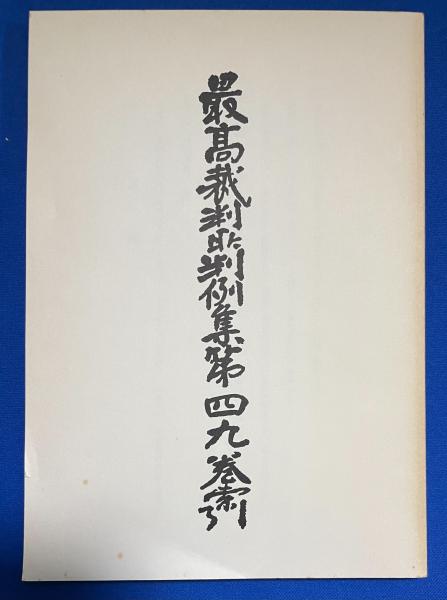 最高裁判所判例集第四九巻索引